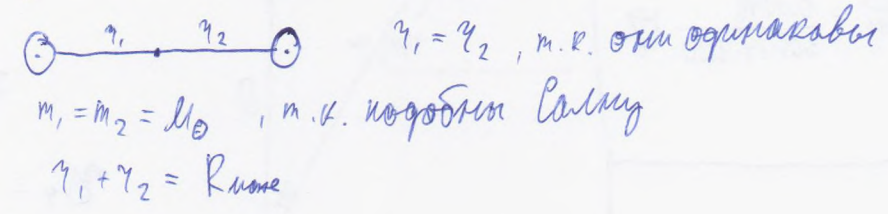 r₁ r₂ r₁ = r₂ , т.к. они одинаковы
m₁ = m₂ = M☉ , т.к. подобны Солнцу
r₁ + r₂ = R